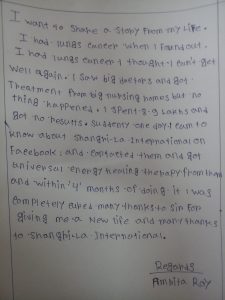 I want to share a story from my life.
I had lungs cancer when I found out.
I had lungs cancer I thought I can't get
well again. I saw big doctors and got
Treatment from big nursing homes but no
thing happened. I spent 8-9 Lakhs and
got no results. Suddenly one day I cam to
know about Shanghi-La International on
Facebook, and contacted them and got
universal energy healing therapy from them
and within '4' months of doing it I was
completely cured many thanks to sir for
giving me a New life and many thanks
to Shangri-La International.
Regards
Ambita Roy